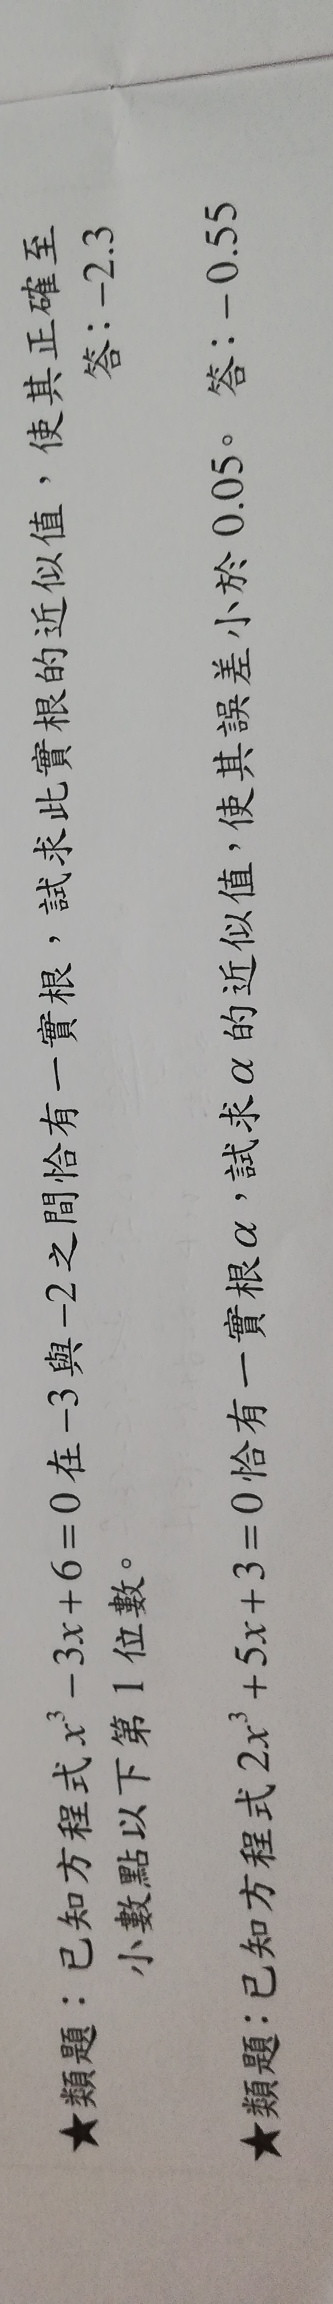 ★類題：已知方程式 x³−3x+6=0 在 −3 與 −2 之間恰有一實根，試求此實根的近似值，使其正確至
小數點以下第 1 位數。 答：−2.3
★類題：已知方程式 2x³+5x+3=0 恰有一實根 α，試求 α 的近似值，使其誤差小於 0.05。 答：−0.55